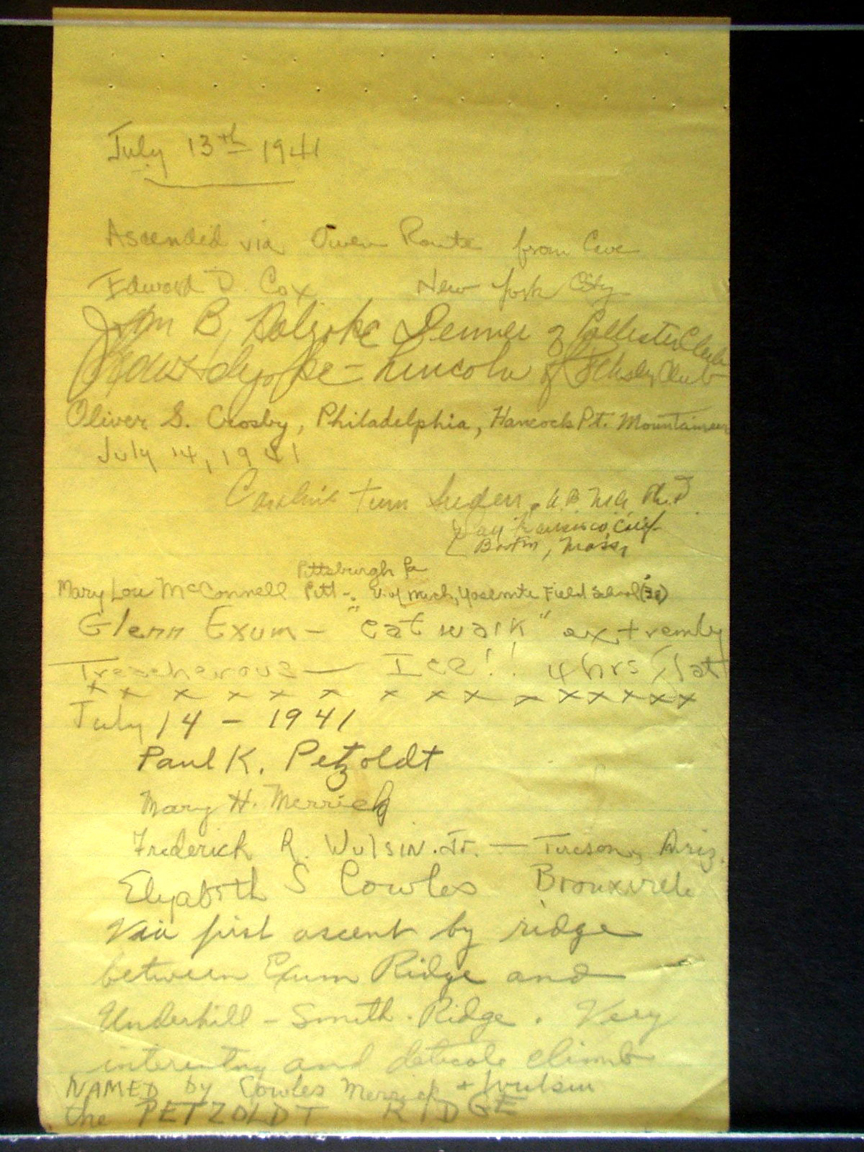 July 13th 1941
Ascended via Owen Route from Cave
Edward D. Cox New York City
John B. Holyoke Denner of Club
Holyoke - Lincoln of Club
Oliver S. Crosby, Philadelphia, Hancock Pt. Mountaineer
July 14, 1941
Caroline A.B. M.A. Ph.D
San Francisco, Calif.
Boston, Mass,
Pittsburgh Pa
Mary Lou McConnell Pitt -. U. of Mich, Yosemite Field School
Glenn Exum - "cat walk" extremly
Trescherous — Ice!! 4 hrs flat
x x x x x x x x x x x x x x x x
July 14 - 1941
Paul K. Petzoldt
Mary H. Merrick
Frederick R. Wulsin. Jr. — Tucson, Ariz.
Elizabeth S Cowles Bronxville
Via first ascent by ridge
between Exum Ridge and
Underhill - Smith. Ridge. Very
interesting and climb
NAMED by Cowles Merrick + Wulsin
the PETZOLDT RIDGE